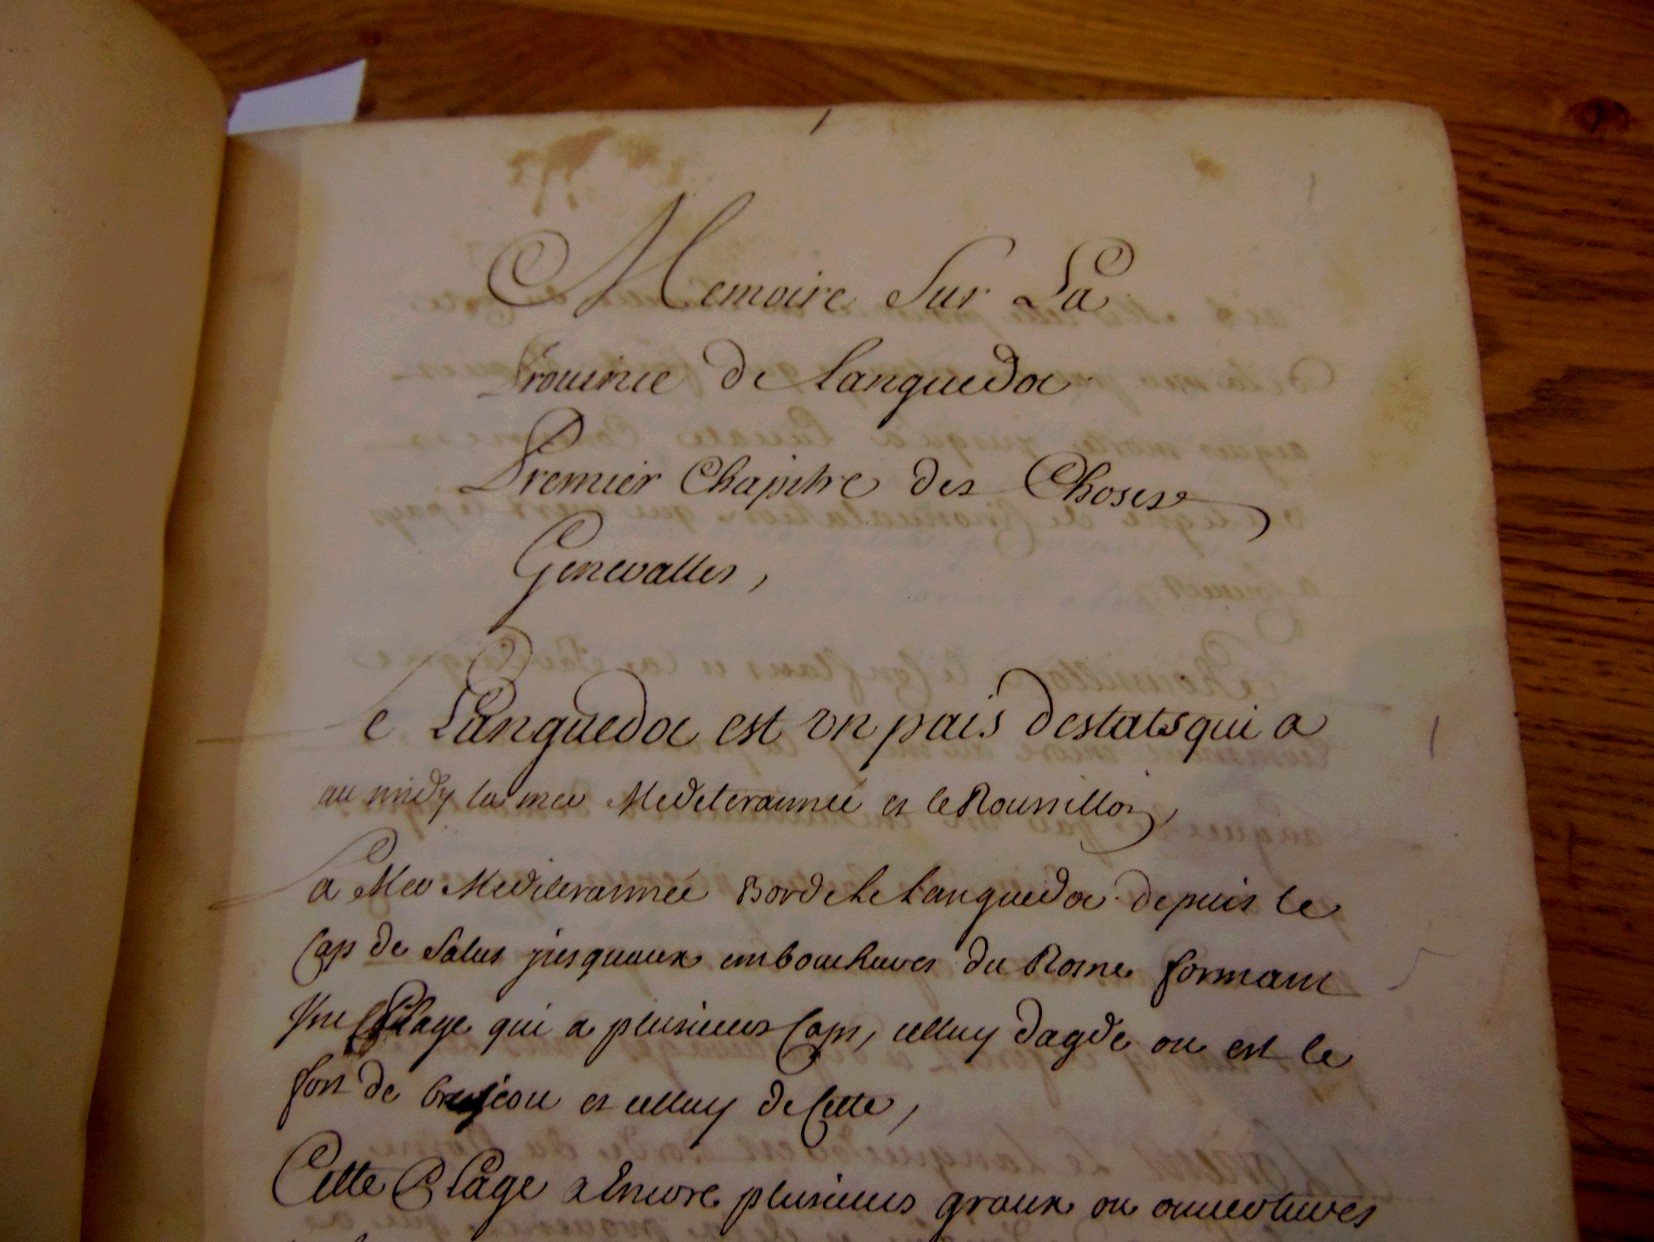 Memoire Sur La
Prouince de Languedoc
Premier Chapitre des Choses
Generalles,
Le Languedoc est vn pais destats qui a
au midy la mer Mediterannée et le Roussillon,
La Mer Mediterannée Borde le Languedoc depuis le
Cap de Salus jusquaux embouchures du Rosne formant
Vne Plage qui a plusieurs Caps, celluy dagde ou est le
fort de brescou et celluy de Cette,
Cette Plage a Encore plusieurs graux ou ouuertures